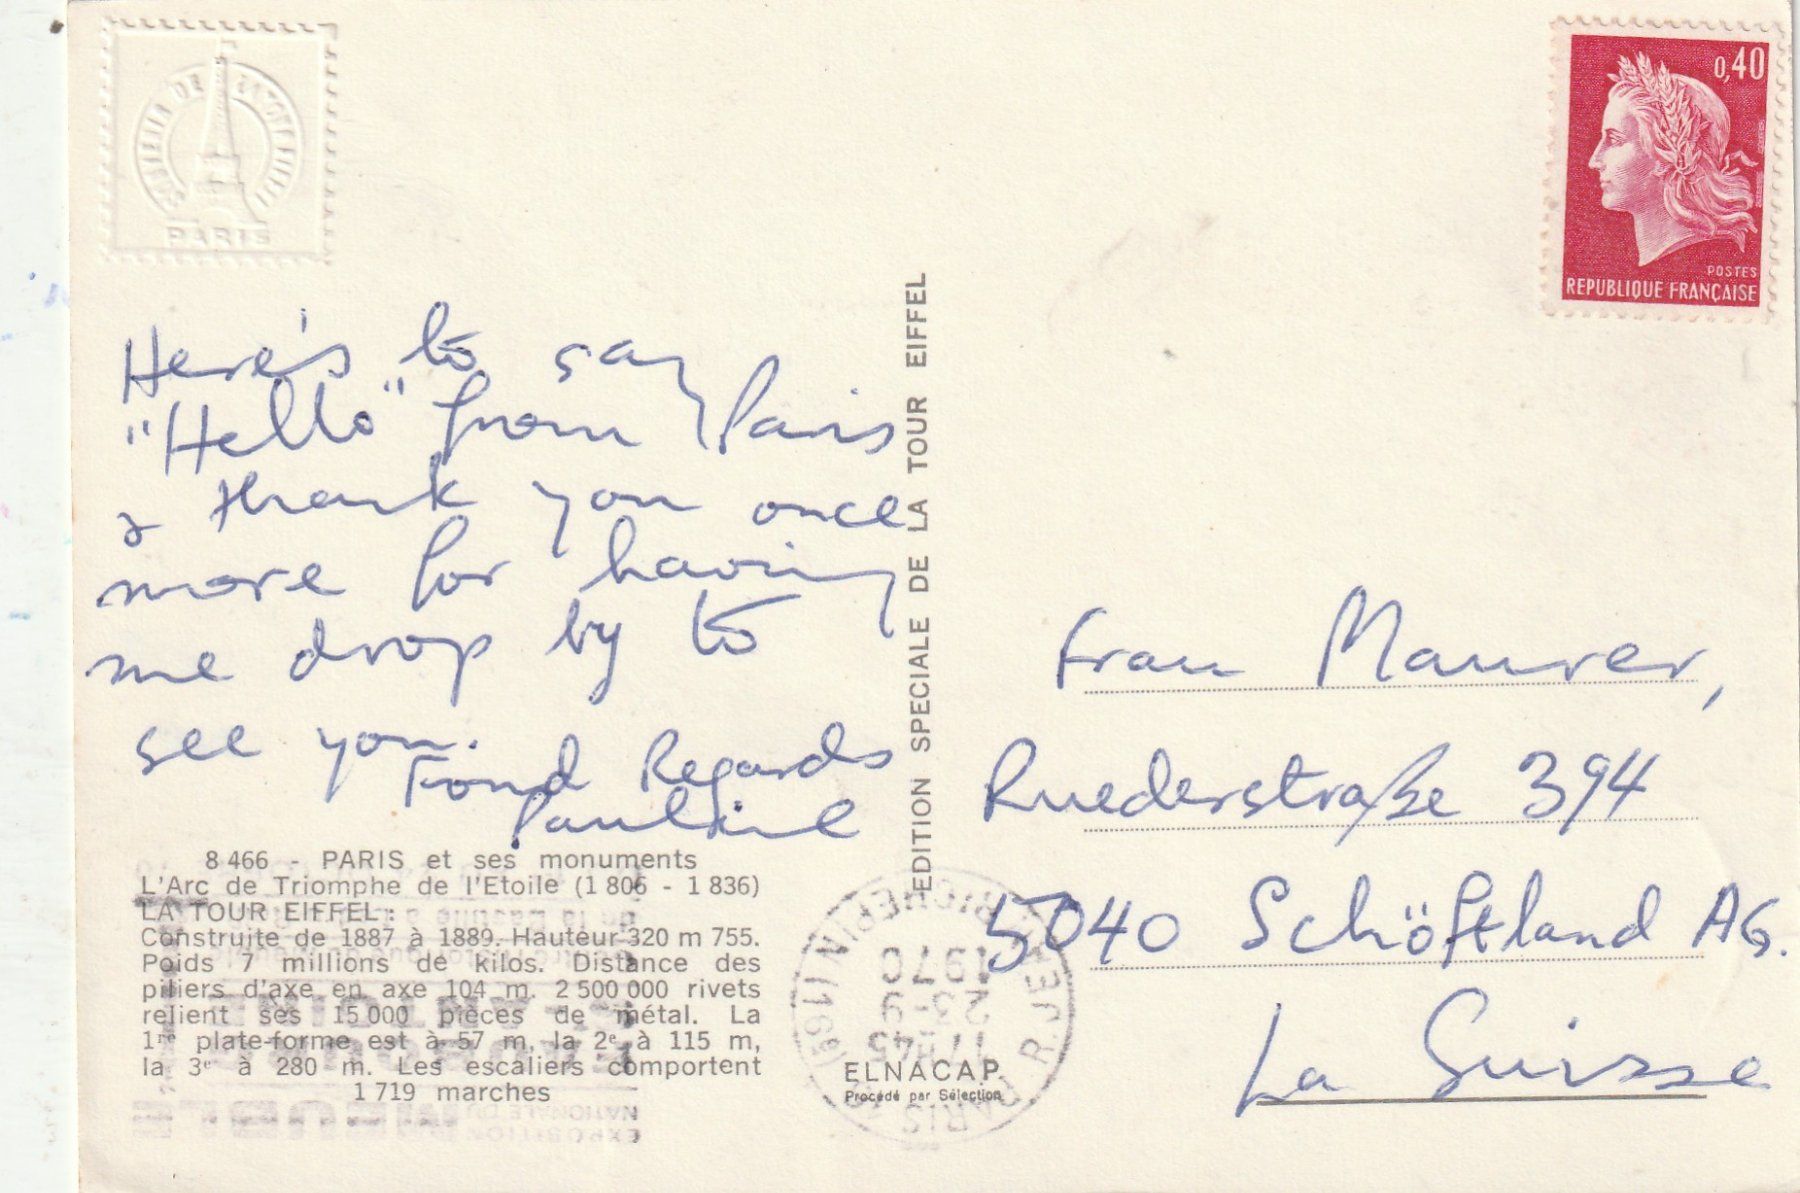 SOUVENIR DE LA TOUR EIFFEL
PARIS
0,40
POSTES
REPUBLIQUE FRANÇAISE
Here's to say
"Hello" from Paris
& thank you once
more for having
me drop by to
see you.
Fond Regards
Pauline
EDITION SPECIALE DE LA TOUR EIFFEL
Frau Maurer,
Ruederstraße 394
5040 Schöftland AG.
La Suisse
8 466 - PARIS et ses monuments
L'Arc de Triomphe de l'Etoile (1 806 - 1 836)
LA TOUR EIFFEL :
Construite de 1887 à 1889. Hauteur 320 m 755.
Poids 7 millions de kilos. Distance des
piliers d'axe en axe 104 m. 2 500 000 rivets
relient ses 15 000 pièces de métal. La
1re plate-forme est à 57 m, la 2e à 115 m,
la 3e à 280 m. Les escaliers comportent
1 719 marches
ELNACAP
Procédé par Sélection
17H45
23-9
1970
R. JEAN RICHEPIN (16e)
EXPOSITION
NATIONALE DU
MEUBLE